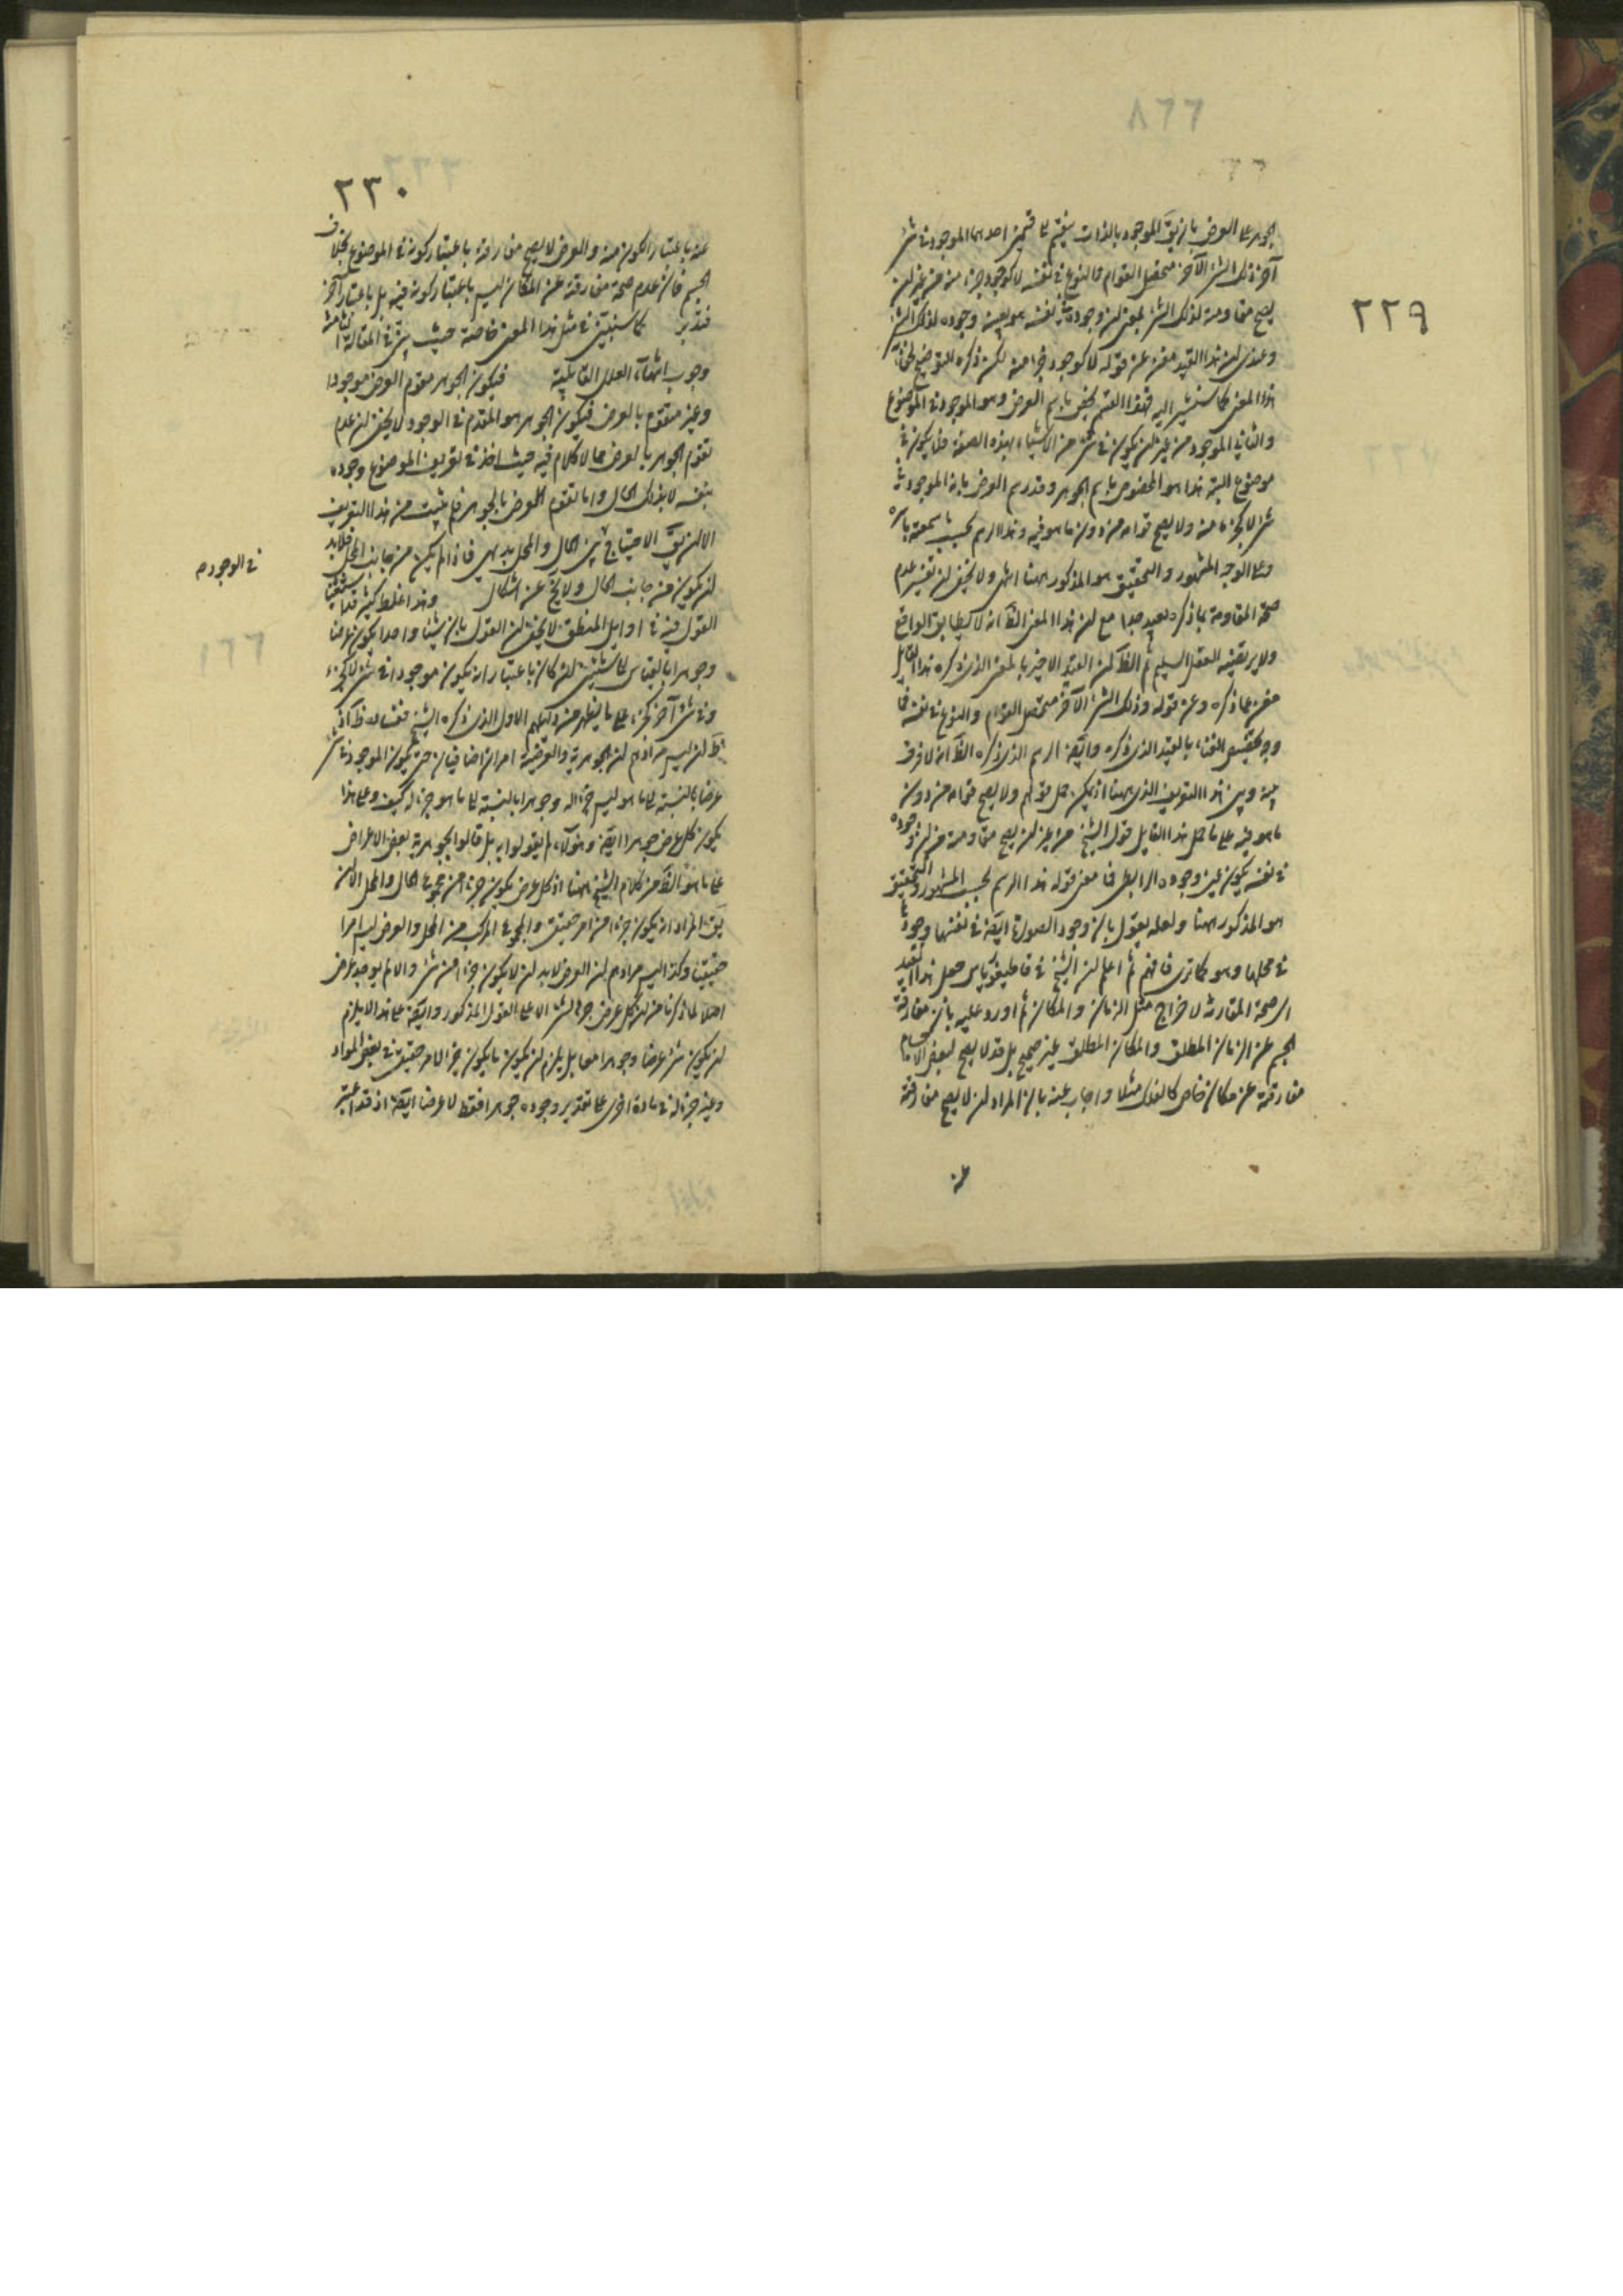 ٢٢٩
الجوهر على العرض بان يق الموجود بالذات ينقسم على قسمين احدهما الموجود فى شئ
آخر ذلك الشئ الآخر متحصل القوام والنوع فى نفسه لا كوجود جزء منه من غير ان
يصح مفارقته لذلك الشئ بمعنى ان وجوده فى نفسه هو بعينه وجوده لذلك الشئ
وعندى ان هذا القيد مغن عن قوله لا كوجود جزء منه لكن ذكره للتوضيح
هذا المعنى كما سنشير اليه فهذا القسم يخص باسم العرض وهو الموجود فى الموضوع
والثانى الموجود من غير ان يكون فى شئ من الاشياء بهذه الصفة فلا يكون فى
موضوع البتة هذا هو المخصوص باسم الجوهر وقد رسم العرض بانه الموجود فى
شئ لا كجزء منه ولا يصح قوامه من دون ما هو فيه وهذا الرسم بحسب
وعلى الوجه المشهور والتحقيق هو المذكور ههنا انتهى ولا يخفى ان تفسير عدم
صحة المفارقة بما ذكره بعيد جدا مع ان هذا المعنى الظ انه لا يطابق الواقع
ولا يرتضيه العقل السليم ثم الظ ان القيد الاخير بالمعنى الذى ذكره هذا القايل
مغن عما ذكره وعن قوله وذلك الشئ الآخر متحصل القوام والنوع فى نفسه فما
وجه تخصيص الغناء بالقيد الذى ذكره وايضا الرسم الذى ذكره الظ انه لا فرق
بينه وبين هذا التعريف الذى ههنا اذ يمكن حمل قولهم ولا يصح قوامه من دون
ما هو فيه على ما حمل هذا القايل قول الشيخ من غير ان يصح مفارقته من ان وجوده
فى نفسه يكون عين وجوده الرابطى فما معنى قوله هذا الرسم بحسب المشهور والتحقيق
هو المذكور ههنا ولعله يقول بان وجود الصورة ايضا فى نفسها وجودها
فى محلها وهو كما ترى فافهم ثم اعلم ان الشيخ فى قاطيغورياس جعل هذا القيد
اى صحة المفارقة لاخراج مثل الزمان والمكان ثم اورد عليه بان مفارقة
الجسم عن الزمان المطلق والمكان المطلق غير صحيح بل قد لا يصح لبعض الاجسام
مفارقته عن مكان خاص كالفلك مثلا واجاب عنه بان المراد ان لا يصح مفارقته
عنه
٢٣٠
عنه باعتبار الكون منه والعرض لا يصح مفارقته باعتبار كونه فى الموضوع بخلاف
الجسم فان عدم صحة مفارقته عن المكان ليس باعتبار كونه فيه بل باعتبار آخر
فتدبر كما سنبين فى مثل هذا المعنى خاصة حيث يبين فى المقالة الثامنة
وجوب انتهاء العلل القابلية فيكون الجوهر مقوم العرض موجودا
وغير متقوم بالعرض فيكون الجوهر هو المقدم فى الوجود لا يخفى ان عدم
تقوم الجوهر بالعرض مما لا كلام فيه حيث اخذ فى تعريف الموضوع وجوده
بنفسه لا بذلك الحال واما تقوم العرض بالجوهر فلم يثبت من هذا التعريف
الا ان يق الاحتياج بين الحال والمحل بديهى فاذا لم يكن من جانب المحل فلابد
ان يكون من جانب الحال ولا يخ عن اشكال وهذا غلط كثير قد اشبعنا
القول فيه فى اوايل المنطق لا يخفى ان القول بان شيئا واحدا يكون عرضا
وجوهرا بالقياس الى شيئين ان كان باعتبار انه يكون موجودا فى شئ لا كجزء
وفى شئ آخر كجزء على ما يظهر من دليلهم الاول الذى ذكره الشيخ ففساده ظ اذ
ظ ان ليس مرادهم ان الجوهرية والعرضية امران اضافيان حتى يكون الموجود فى شئ
عرضا بالنسبة الى ما هو ليس جزء له وجوهرا بالنسبة الى ما هو جزء له كيف وعلى هذا
يكون كل عرض جوهرا ايضا وهؤلاء لم يقولوا به بل قالوا بجوهرية بعض الاعراض
على ما هو الظ من كلام الشيخ ههنا اذ كل عرض يكون جزء من مجموع الحال والمحل الا ان
يق المراد انه يكون جزء من امر حقيقى والمجموع المركب من المحل والعرض ليس امرا
حقيقيا وكذا ليس مرادهم ان العرض لابد ان لا يكون جزء من شئ والا لم يوجد عرض
اصلا لما ذكرنا من ان كل عرض جزء لشئ الا على القول المذكور وايضا على هذا لا يلزم
ان يكون شئ عرضا وجوهرا معا بل يلزم ان يكون ما يكون جزء لامر حقيقى فى بعض المواد
وغير جزء له فى مادة اخرى على تقدير وجوده جوهرا فقط لا عرضا ايضا اذ قد اعتبر
فى الوجود م